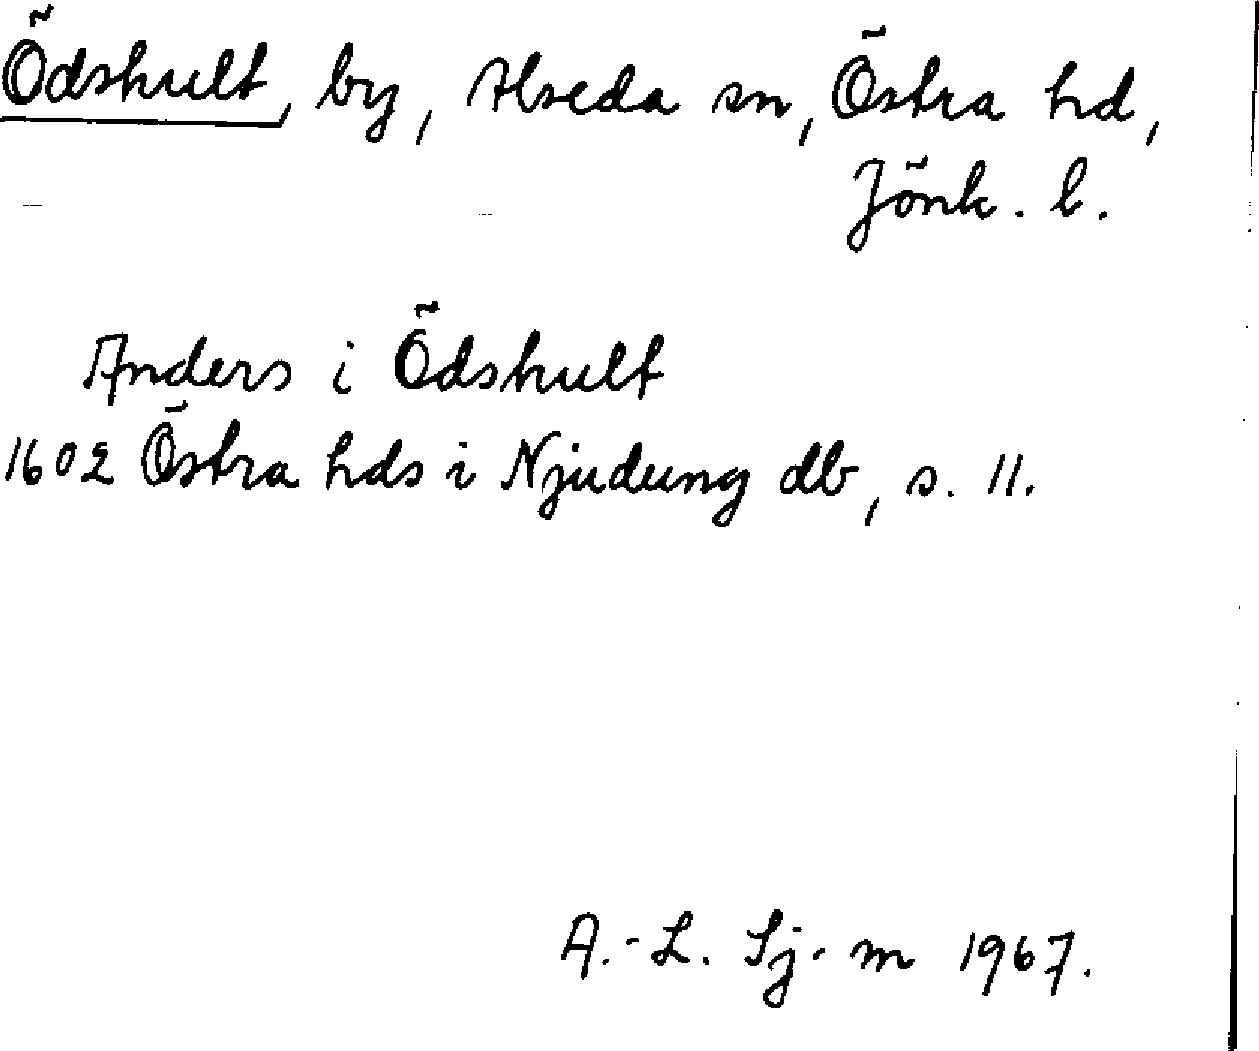 Ödshult, by, Alseda sn, Östra hd,
Jönk. l.
Anders i Ödshult
1602 Östra hds i Njudung db, s. 11.
A.-L. Sj-m 1967.